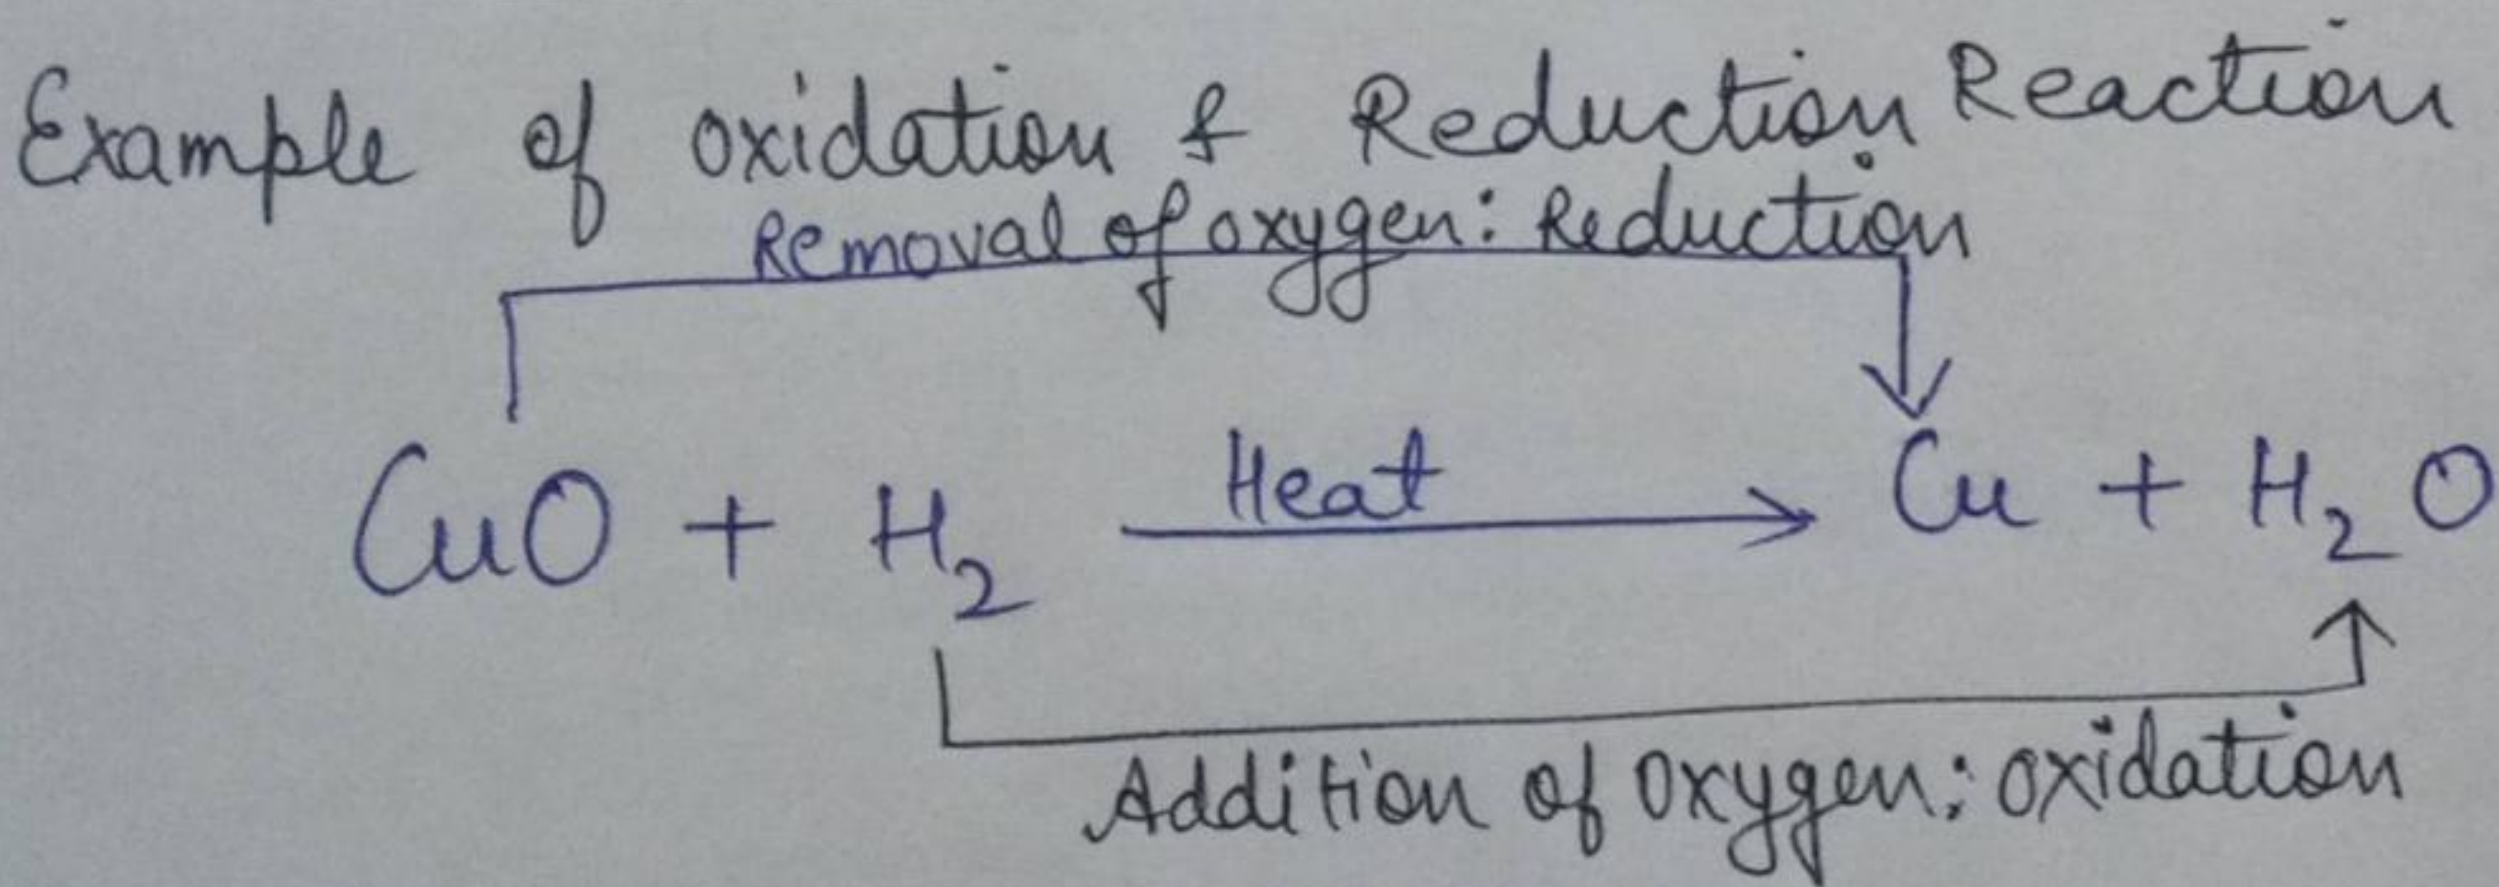 Example of oxidation & Reduction Reaction
Removal of oxygen: Reduction
CuO + H₂ Heat → Cu + H₂O
Addition of oxygen: oxidation